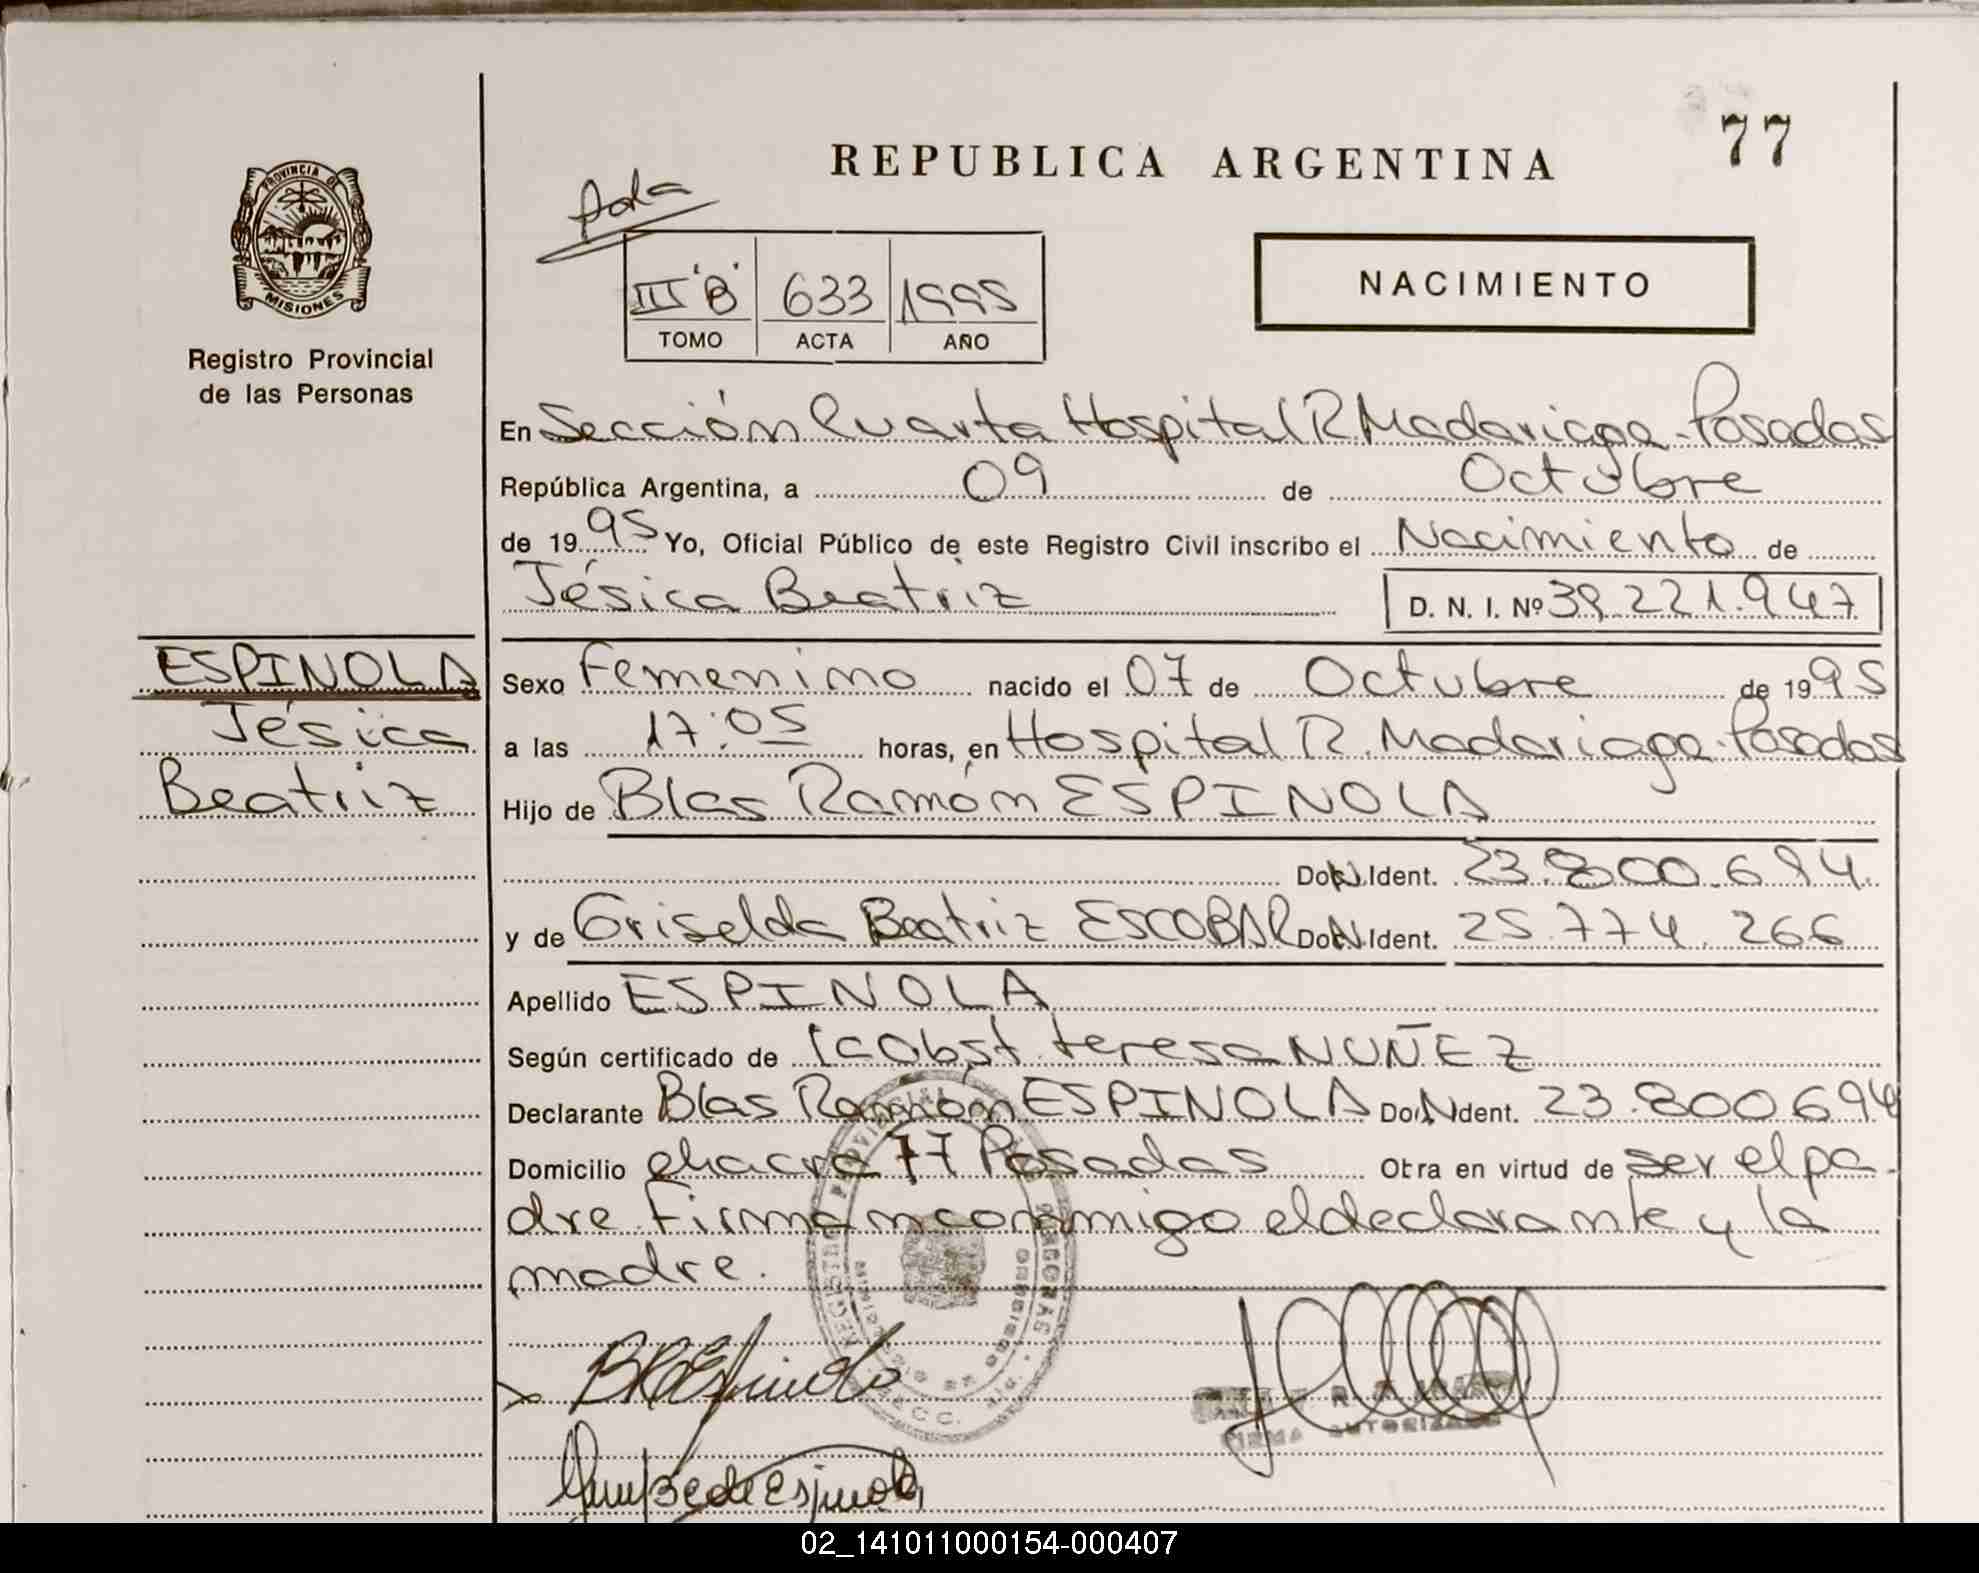 77
REPUBLICA ARGENTINA
PROVINCIA DE
MISIONES
Registro Provincial
de las Personas
III "B" 633 1995
TOMO ACTA AÑO
NACIMIENTO
En Sección Cuarta Hospital R. Madariaga - Posadas
República Argentina, a 09 de Octubre
de 1995 Yo, Oficial Público de este Registro Civil inscribo el Nacimiento de
Jésica Beatriz D. N. I. Nº 39.221.947
ESPINOLA
Jésica
Beatriz
Sexo Femenino nacido el 07 de Octubre de 1995
a las 17:05 horas, en Hospital R. Madariaga. Posadas
Hijo de Blas Ramón ESPINOLA
Ident. 23.800.694.
y de Griselda Beatriz ESCOBAR Ident. 25.774.266
Apellido ESPINOLA
Según certificado de Obst. teresa NUÑEZ
Declarante Blas Ramón ESPINOLA Ident. 23.800694
Domicilio chacra 77 Posadas Otra en virtud de ser el pa-
dre. Firman conmigo el declarante y la
madre.
FIRMA AUTORIZADA
02_141011000154-000407